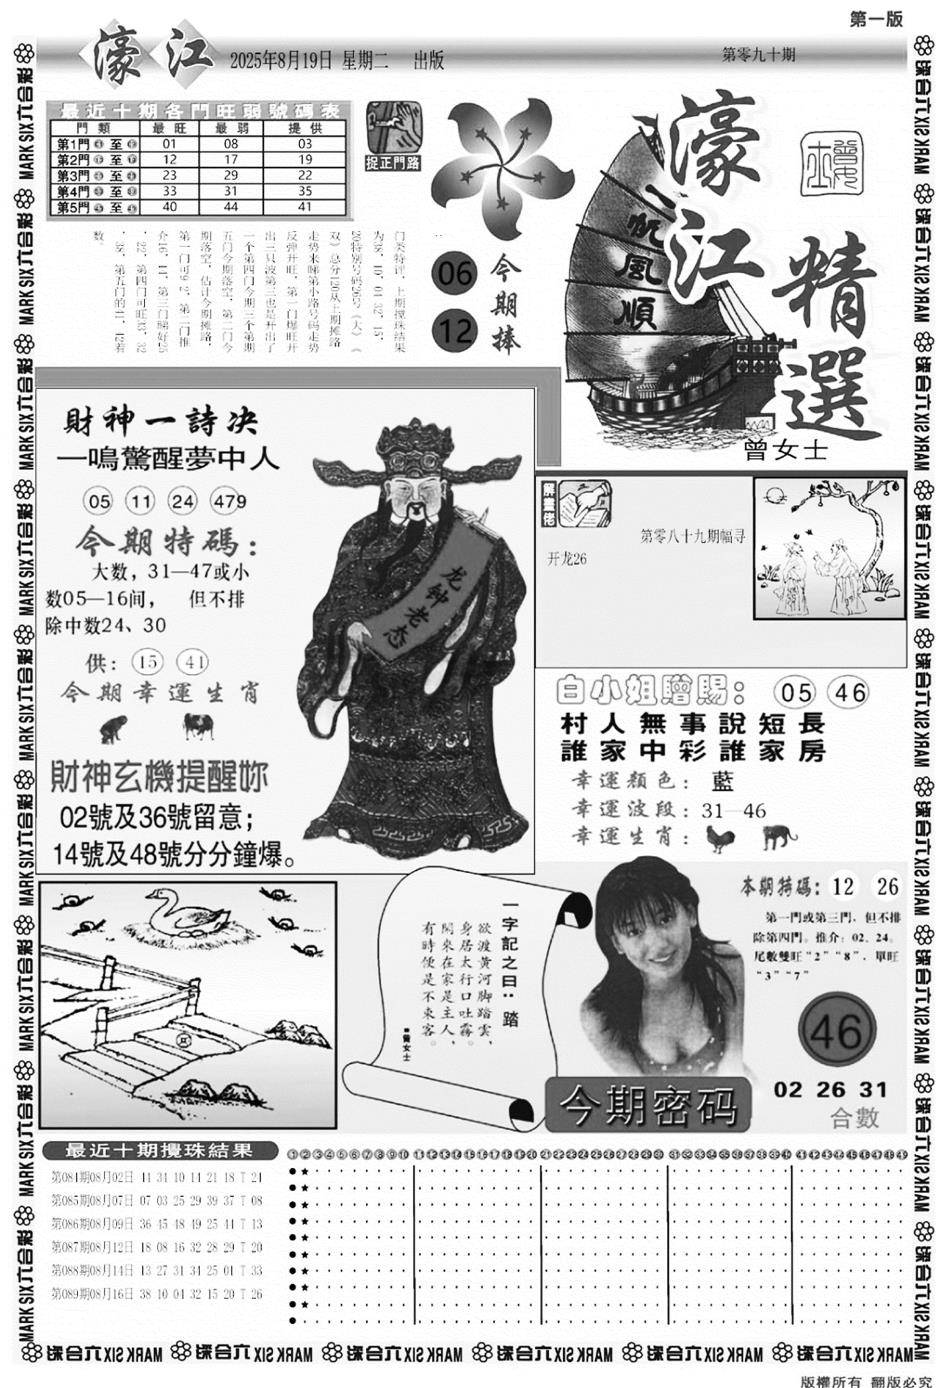 第一版
濠江 2025年8月19日 星期二 出版 第零九十期
最近十期各門旺弱號碼表
門類 最旺 最弱 提供
第1門 至 01 08 03
第2門 至 12 17 19
第3門 至 23 29 22
第4門 至 33 31 35
第5門 至 40 44 41
捉正門路
一帆風順
濠江
精選
曾女士
今期捧
06
12
门类特评，上期搅珠结果
为38，10，01 32，15，
20特别号码26号（大）（
双）总分120从上期摊路
走势来睇第小路号码走势
反弹开旺，第一门爆旺开
出三只波第三也是开出了
一个第四门今期三个第期
五门今期落空，第二门今
期落空，估计今期摊路，
第一门可9 2，第二门推
介16，11，第三门睇好25
，22，第四门可旺33，32
，35，第五门的41，42着
数。
財神一詩决
一鳴驚醒夢中人
05 11 24 479
今期特碼：
大数，31—47或小
数05—16间， 但不排
除中数24、30
供：15 41
今期幸運生肖
財神玄機提醒妳
02號及36號留意；
14號及48號分分鐘爆。
龙钟老态
解畫佬
第零八十九期幅寻
开龙26
白小姐贈賜：05 46
村人無事說短長
誰家中彩誰家房
幸運顏色：藍
幸運波段：31—46
幸運生肖：
一字記之曰：踏
欲渡黃河脚踏雲，
身居太行口吐霧。
閑來在家是主人，
有時便是不來客。
■曾女士
本期特碼：12 26
第一門或第三門，但不排
除第四門。推介：02、24。
尾數雙旺“2”“8”，單旺
“3”“7”
46
今期密码
02 26 31
合數
最近十期攪珠結果
第084期08月02日 41 34 10 14 21 18 T 24
第085期08月07日 07 03 25 29 39 37 T 08
第086期08月09日 36 45 48 49 25 44 T 13
第087期08月12日 18 08 16 32 28 29 T 20
第088期08月14日 13 27 31 34 25 01 T 33
第089期08月16日 38 10 04 32 15 20 T 26
①②③④⑤⑥⑦⑧⑨⑩⑪⑫⑬⑭⑮⑯⑰⑱⑲⑳㉑㉒㉓㉔㉕㉖㉗㉘㉙㉚㉛㉜㉝㉞㉟㊱㊲㊳㊴㊵㊶㊷㊸㊹㊺㊻㊼㊽㊾
MARK SIX 六合彩
版權所有 翻版必究